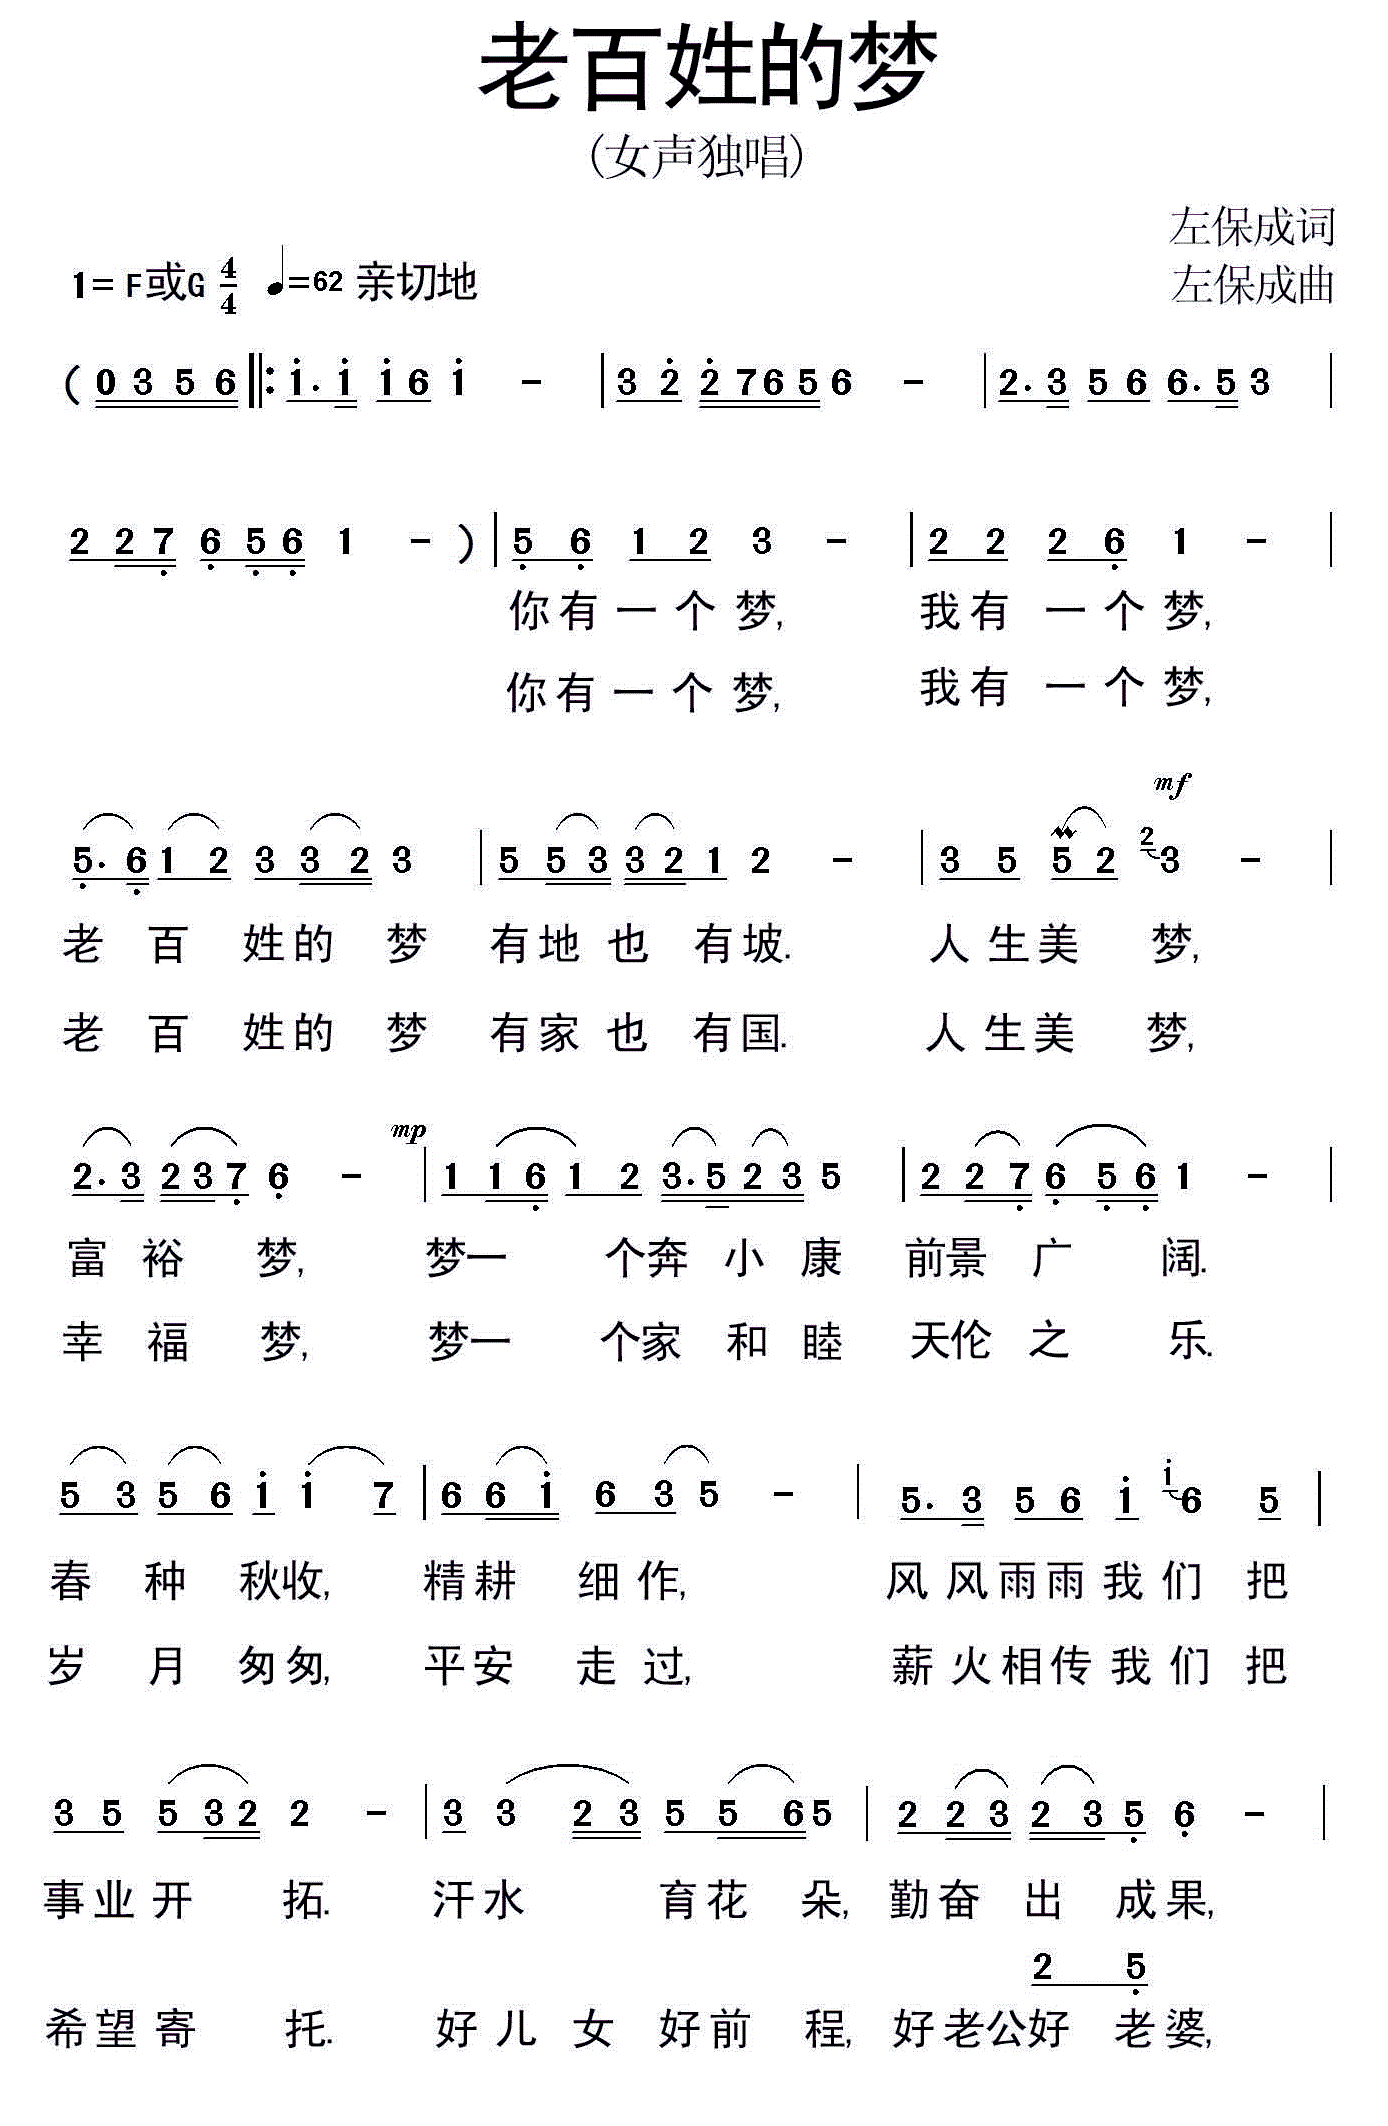 老百姓的梦
(女声独唱)
左保成词
1=F或G 4/4 ♩=62 亲切地
左保成曲
( 0 3 5 6 ‖: i. i i 6 i - | 3 2̇ 2̇ 7 6 5 6 - | 2. 3 5 6 6. 5 3 |
2 2 7̣ 6̣ 5̣ 6̣ 1 - ) | 5̣ 6̣ 1 2 3 - | 2 2 2 6̣ 1 - |
你有一个梦, 我有一个梦,
你有一个梦, 我有一个梦,
mf
5̣. 6̣ 1 2 3 3 2 3 | 5 5 3 3 2 1 2 - | 3 5 5 2 2 3 - |
老百姓的梦 有地也有坡. 人生美梦,
老百姓的梦 有家也有国. 人生美梦,
mp
2. 3 2 3 7̣ 6̣ - | 1 1 6̣ 1 2 3. 5 2 3 5 | 2 2 7̣ 6̣ 5̣ 6̣ 1 - |
富裕梦, 梦一个奔小康 前景广阔.
幸福梦, 梦一个家和睦 天伦之乐.
5 3 5 6 i i 7 | 6 6 i 6 3 5 - | 5. 3 5 6 i i 6 5 |
春种秋收, 精耕细作, 风风雨雨我们把
岁月匆匆, 平安走过, 薪火相传我们把
3 5 5 3 2 2 - | 3 3 2 3 5 5 6 5 | 2 2 3 2 3 5̣ 6̣ - |
事业开拓. 汗水育花朵, 勤奋出成果,
2 5̣
希望寄托. 好儿女好前程, 好老公好老婆,